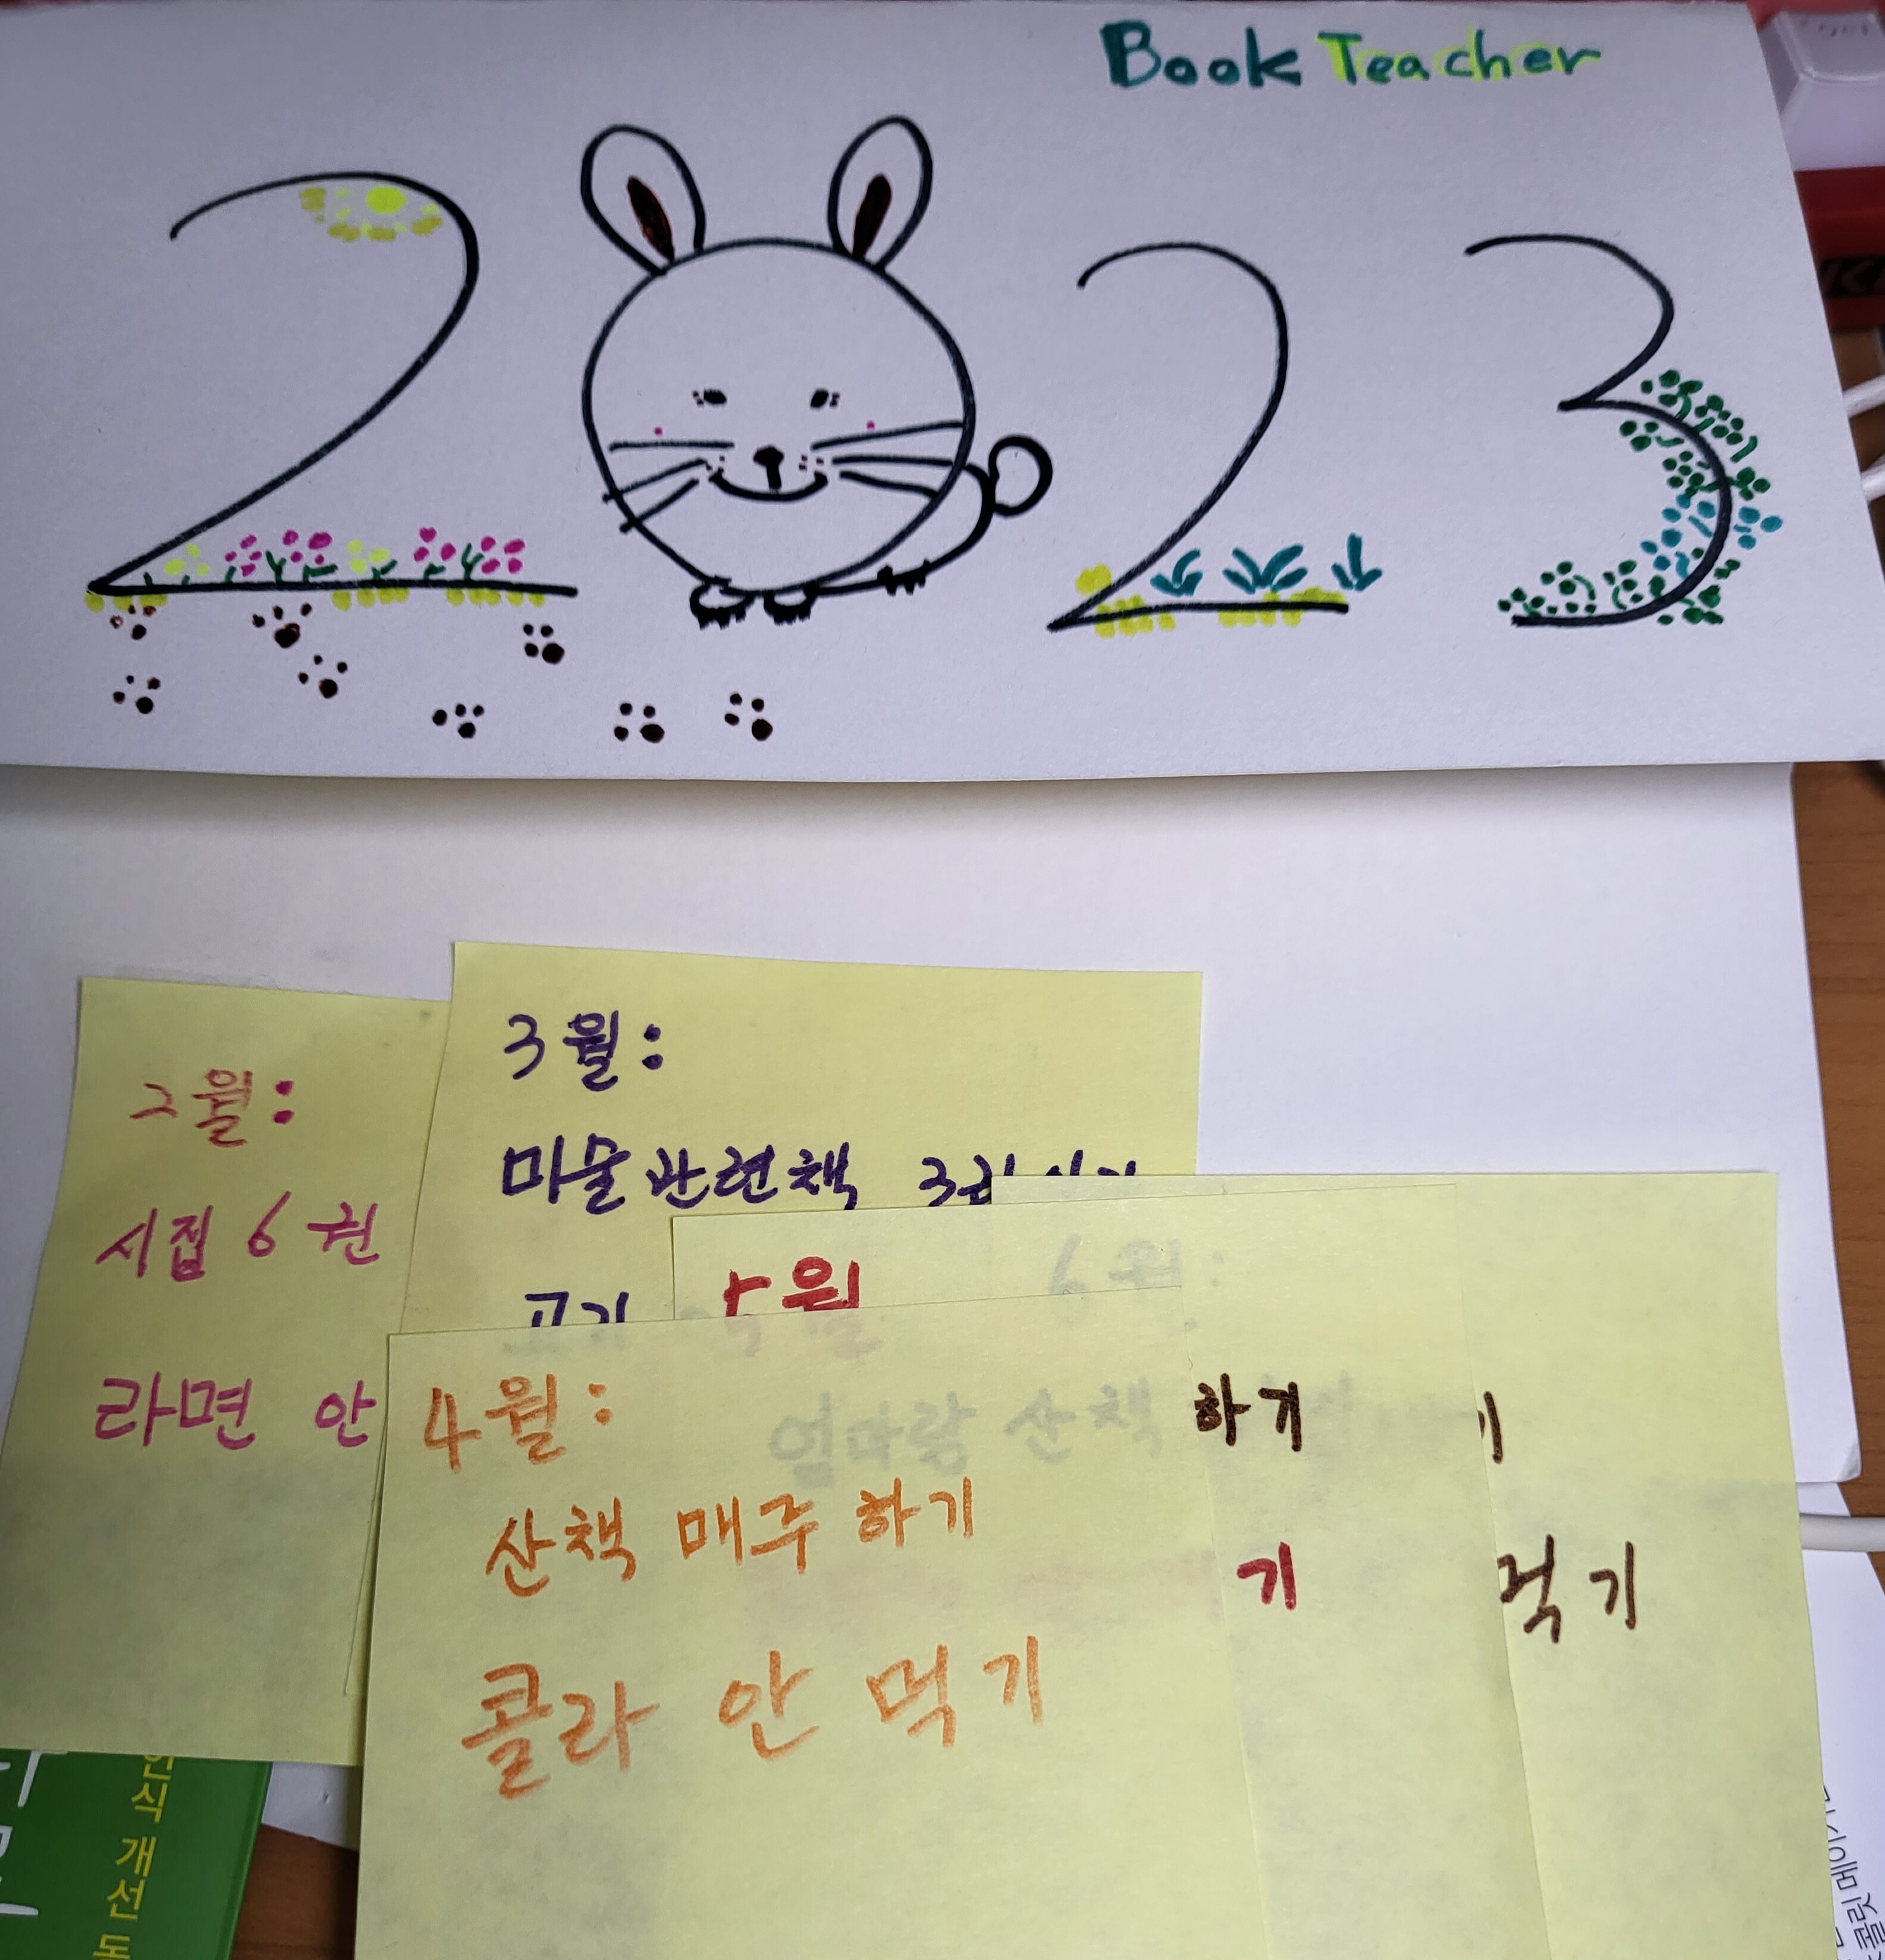 Book Teacher
2 2 3
2월:
시집 6권
라면 안
3월:
미술관련책 3권
고기
5월
6월:
엄마랑 산책
하기
기
기
먹기
4월:
산책 매주 하기
콜라 안 먹기
인식 개선